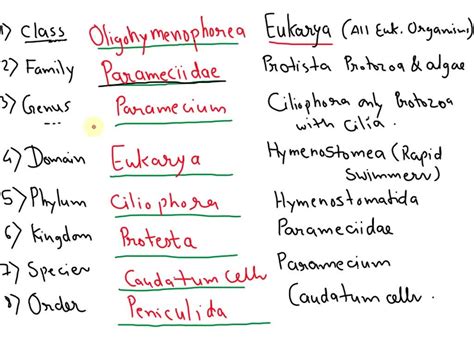 1) Class Oligohymenophorea Eukarya (All Euk. Organism)
2) Family Parameciidae Protista Protozoa & algae
3) Genus Paramecium Ciliophora only Protozoa
with Cilia.
4) Domain Eukarya Hymenostomea (Rapid
Swimmers)
5) Phylum Ciliophora Hymenostomatida
6) Kingdom Protesta Parameciidae
7) Species Caudatum cells Paramecium
8) Order Peniculida Caudatum cells.